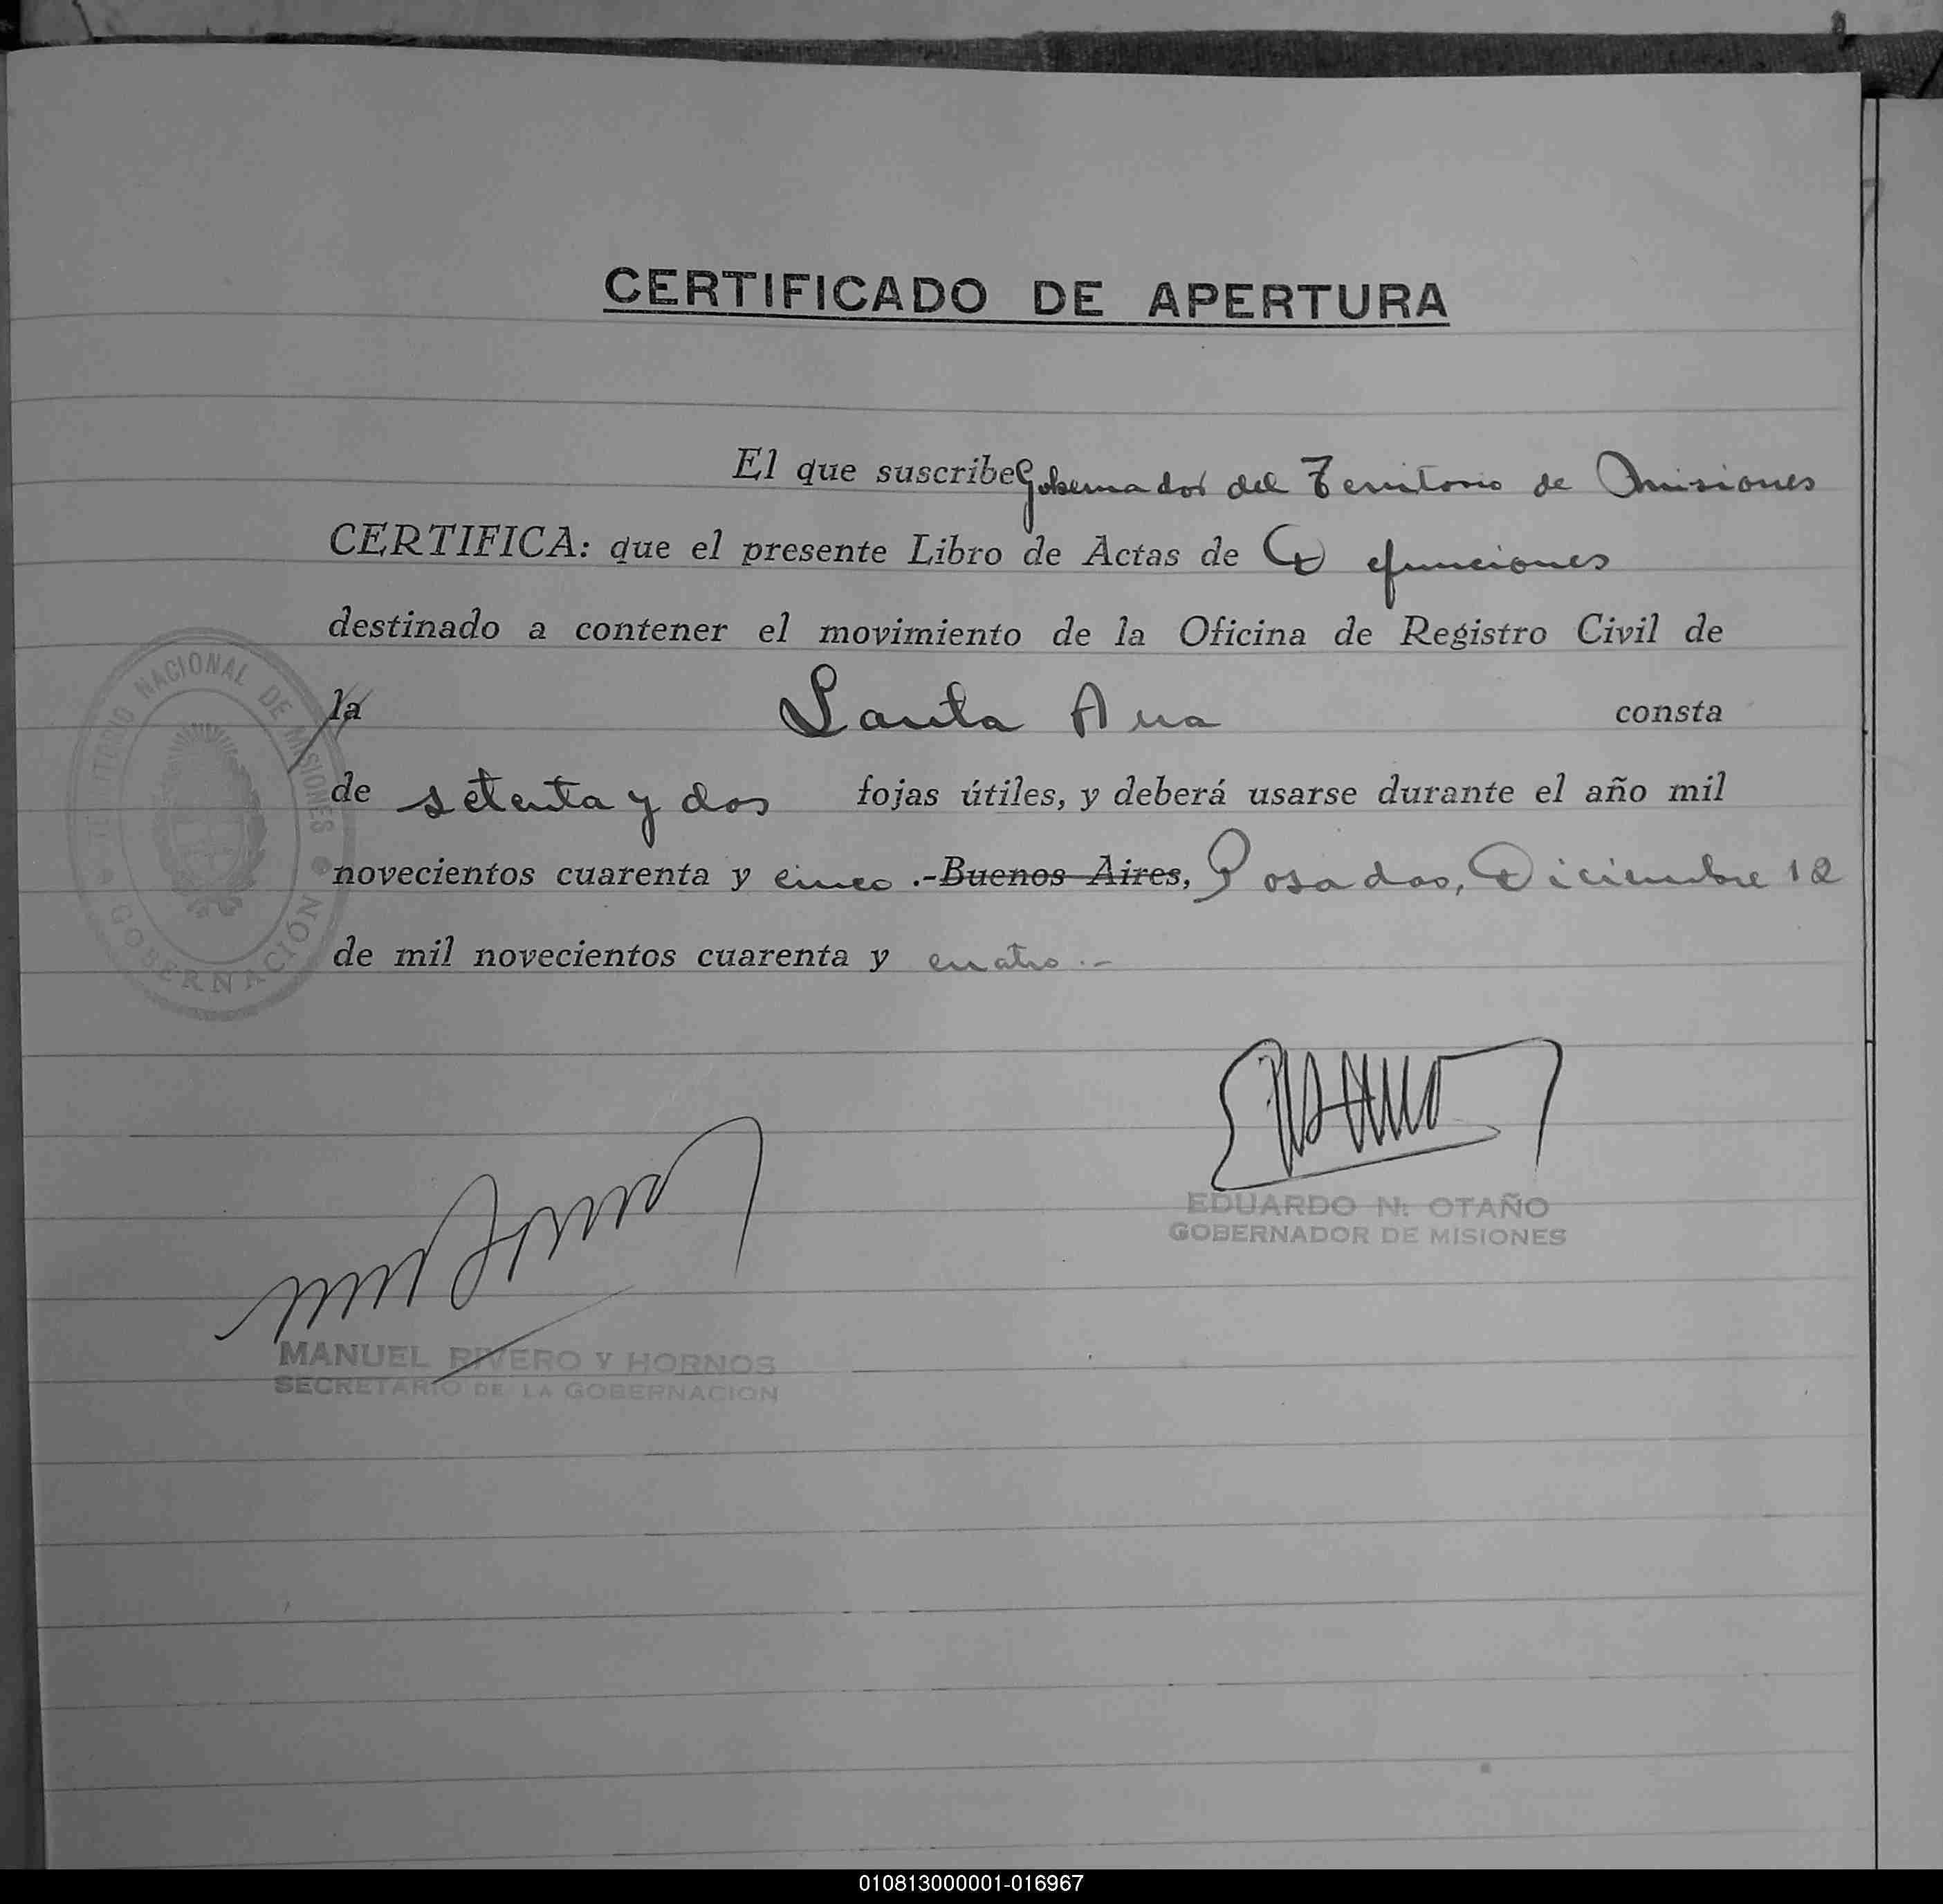 CERTIFICADO DE APERTURA
El que suscribe Gobernador del Territorio de Misiones
CERTIFICA: que el presente Libro de Actas de Defunciones
destinado a contener el movimiento de la Oficina de Registro Civil de
la Santa Ana consta
de setenta y dos fojas útiles, y deberá usarse durante el año mil
novecientos cuarenta y cinco .-Buenos Aires, Posadas, Diciembre 12
de mil novecientos cuarenta y cuatro.-
TERRITORIO NACIONAL DE MISIONES
GOBERNACIÓN
EDUARDO N. OTAÑO
GOBERNADOR DE MISIONES
MANUEL RIVERO Y HORNOS
SECRETARIO DE LA GOBERNACION
010813000001-016967